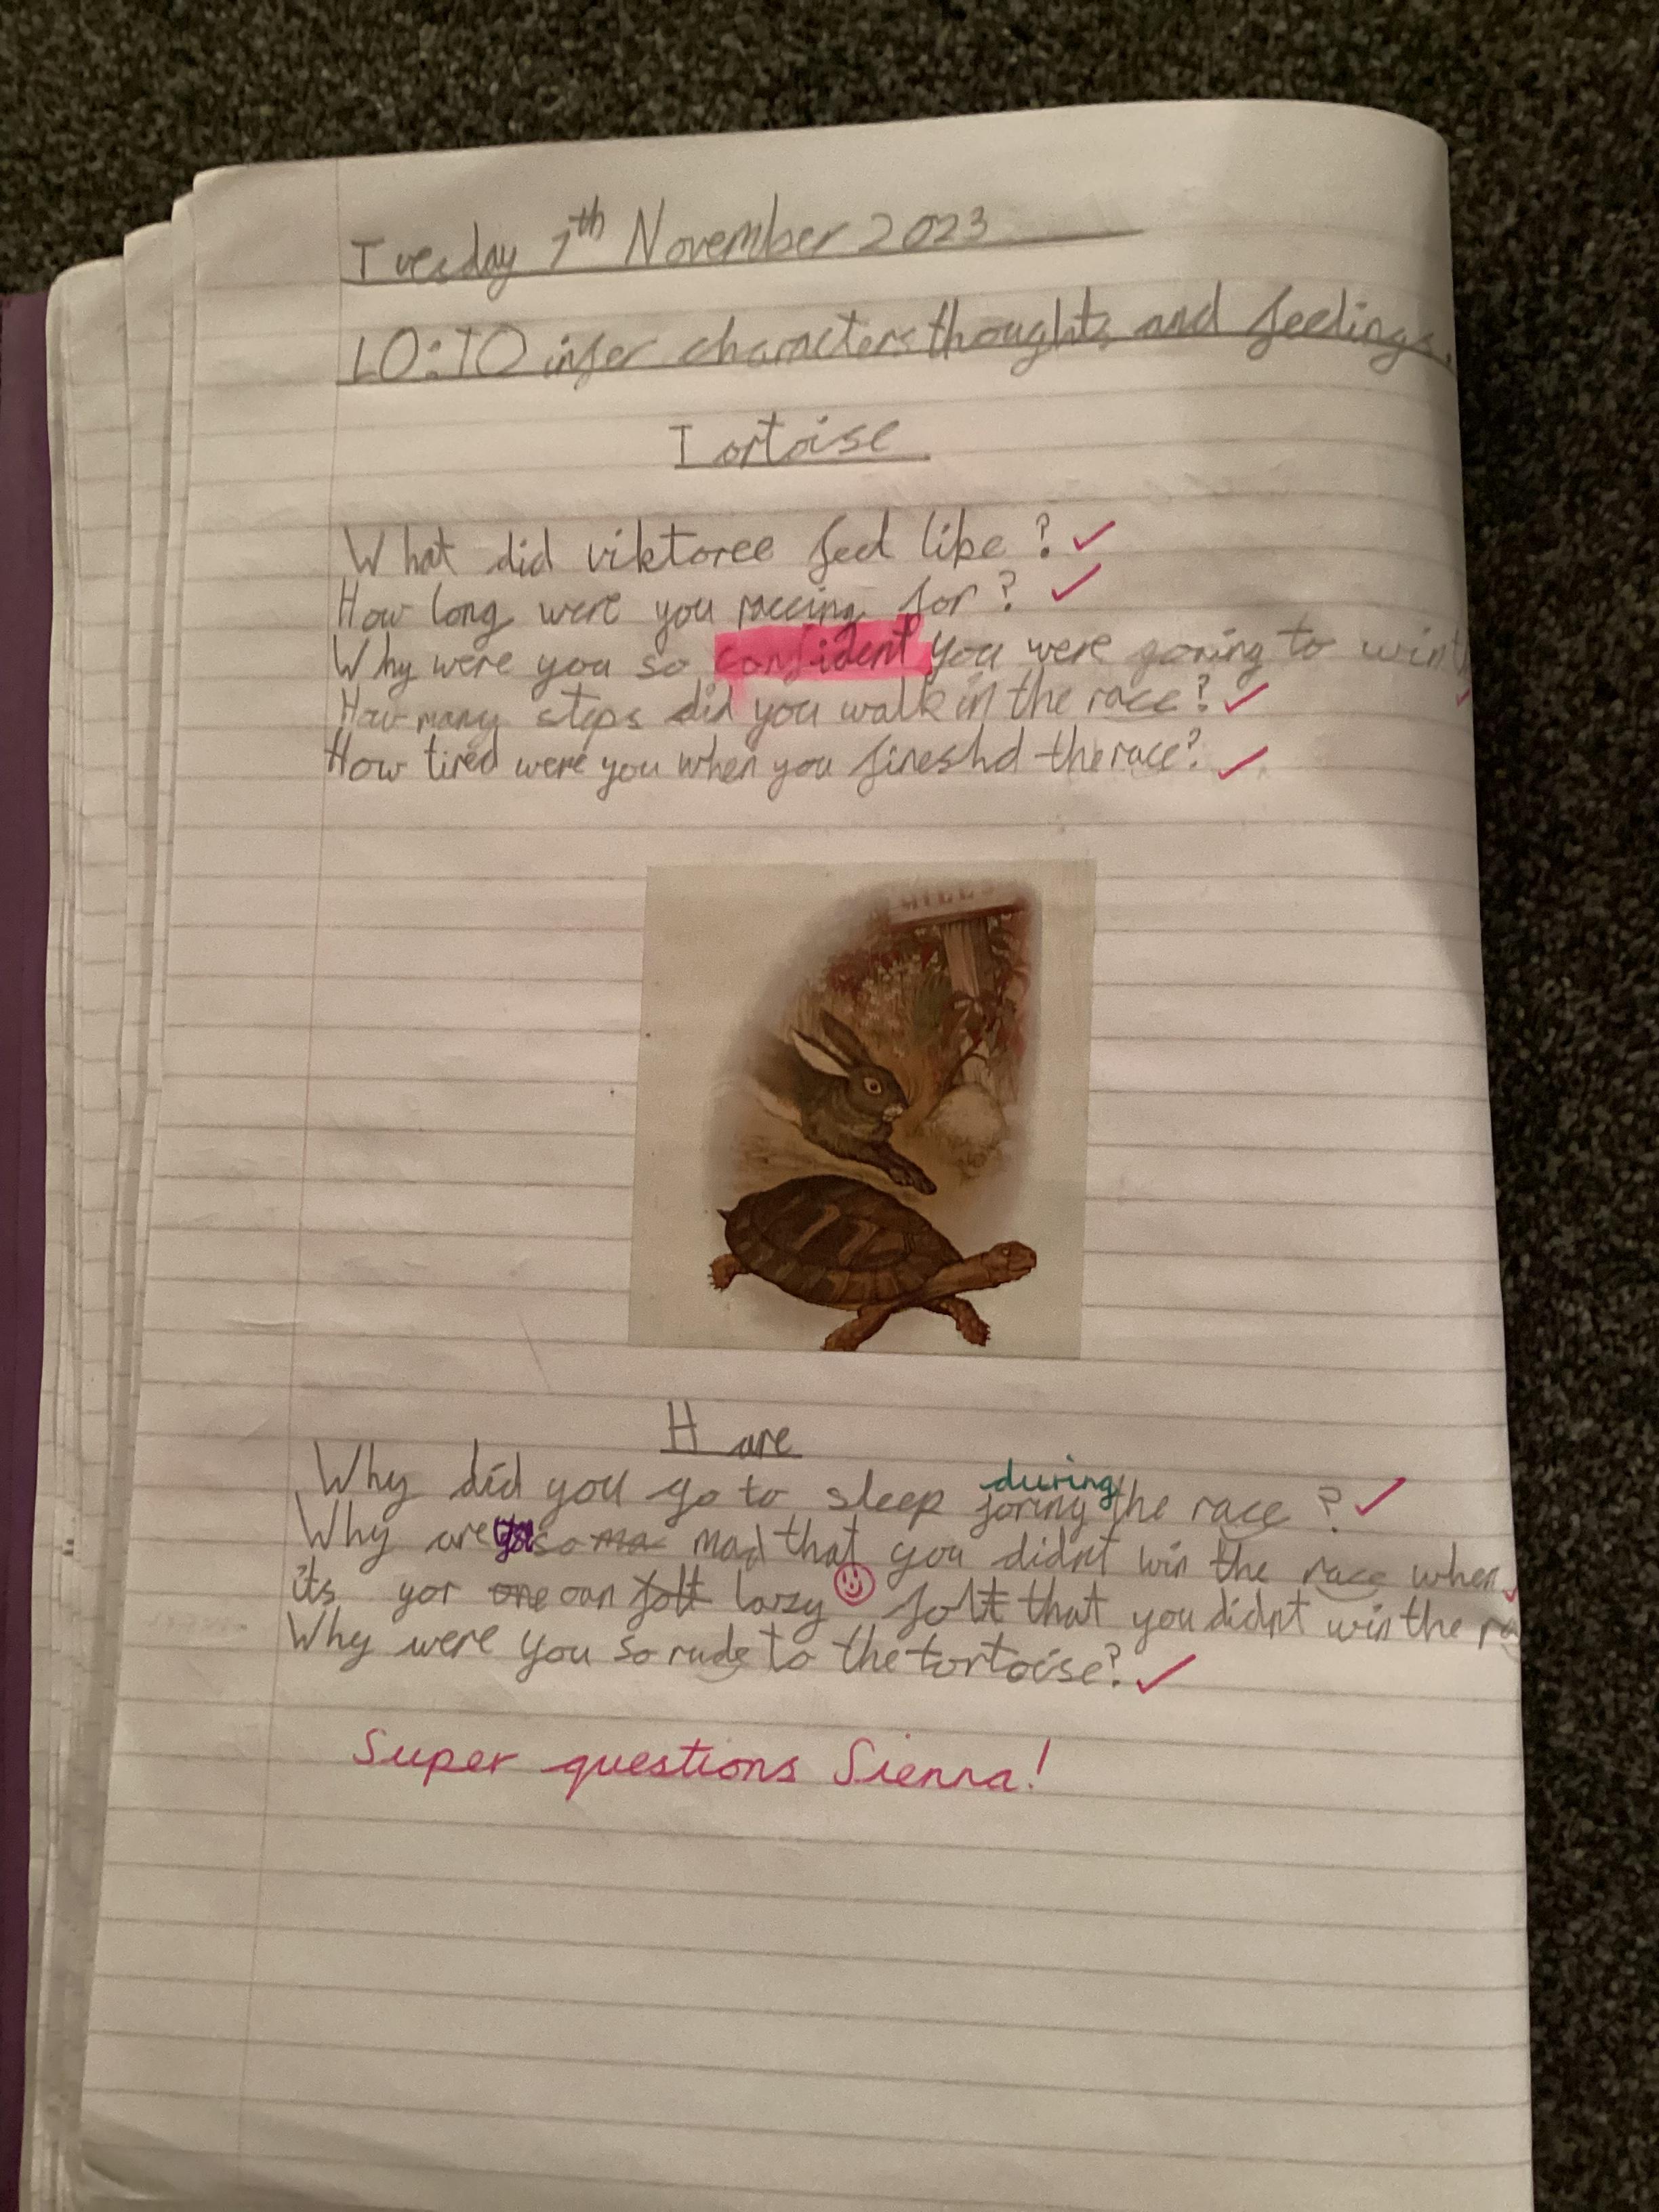 Tuesday 7th November 2023
LO: TO infer characters thoughts and feelings.
Tortoise
What did viktoree feel like?
How long were you raceing for?
Why were you so confident you were goning to win
How many steps did you walk in the race?
How tired were you when you fineshd the race?
Hare
during
Why did you go to sleep joring the race?
Why are you so ma mad that you didn't win the race when
its yor one oan folt larzy folt that you didn't win the ra
Why were you so rude to the tortoise?
Super questions Sienna!